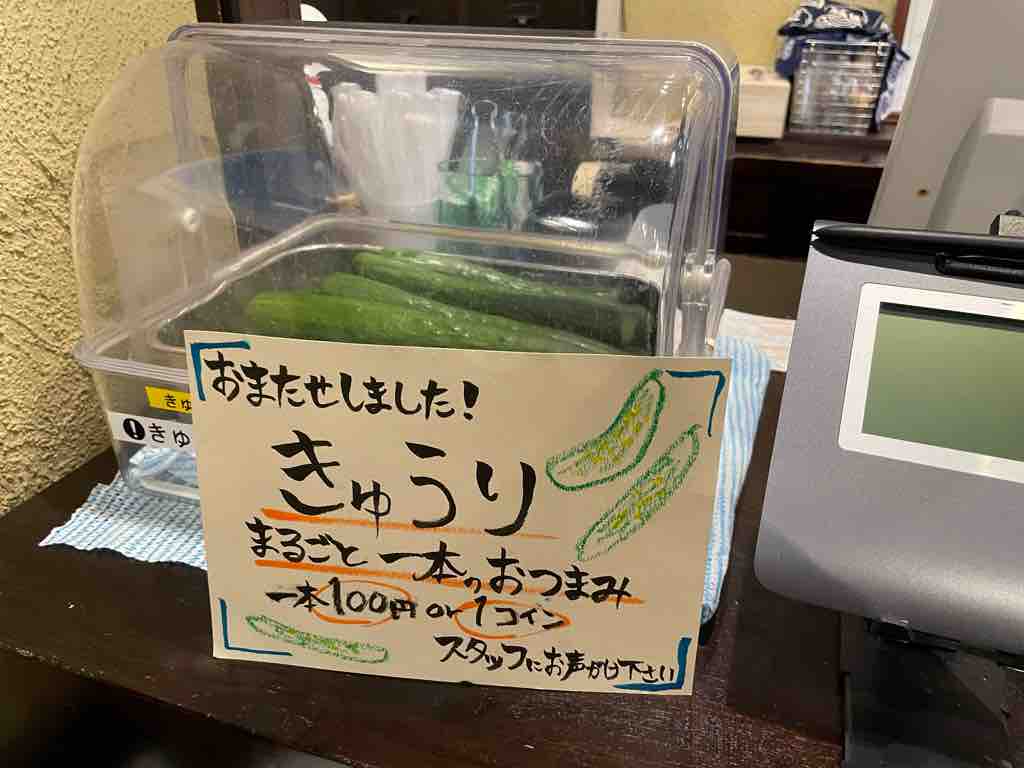 きゅ
きゅ
おまたせしました!
きゅうり
まるごと一本のおつまみ
一本100円 or 1コイン
スタッフにお声がけ下さい